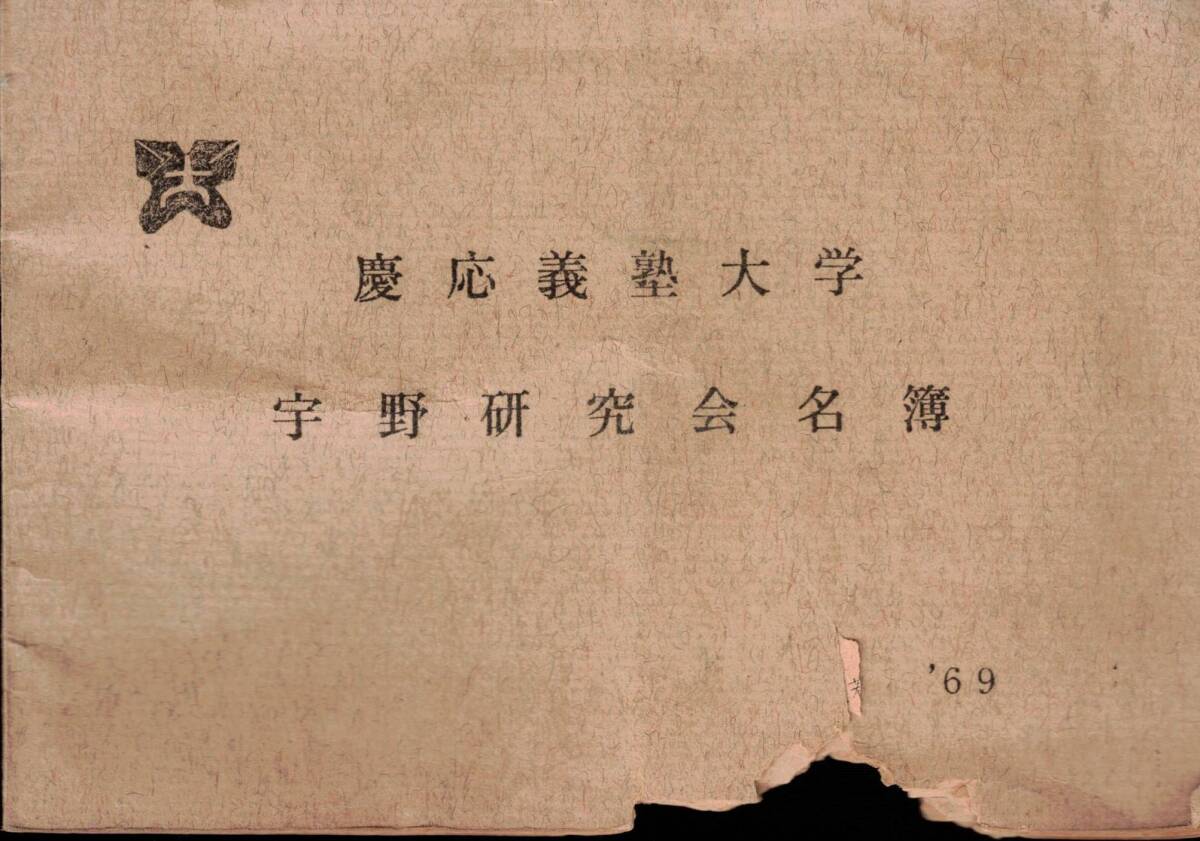 慶応義塾大学
宇野研究会名簿
'69